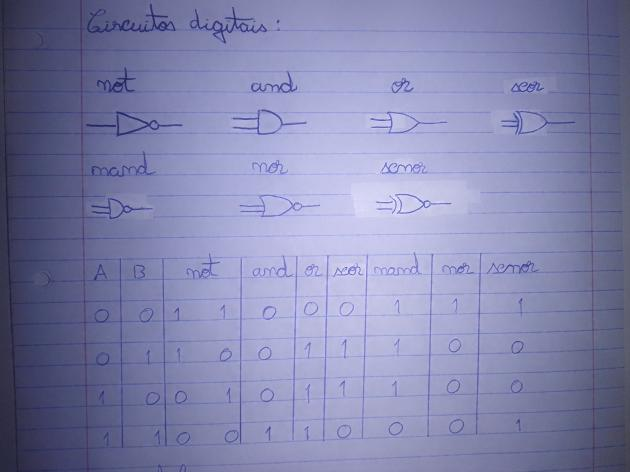 Circuitos digitais:
not and or xor
nand nor xnor
A B not and or xor nand nor xnor
0 0 1 1 0 0 0 1 1 1
0 1 1 0 0 1 1 1 0 0
1 0 0 1 0 1 1 1 0 0
1 1 0 0 1 1 0 0 0 1